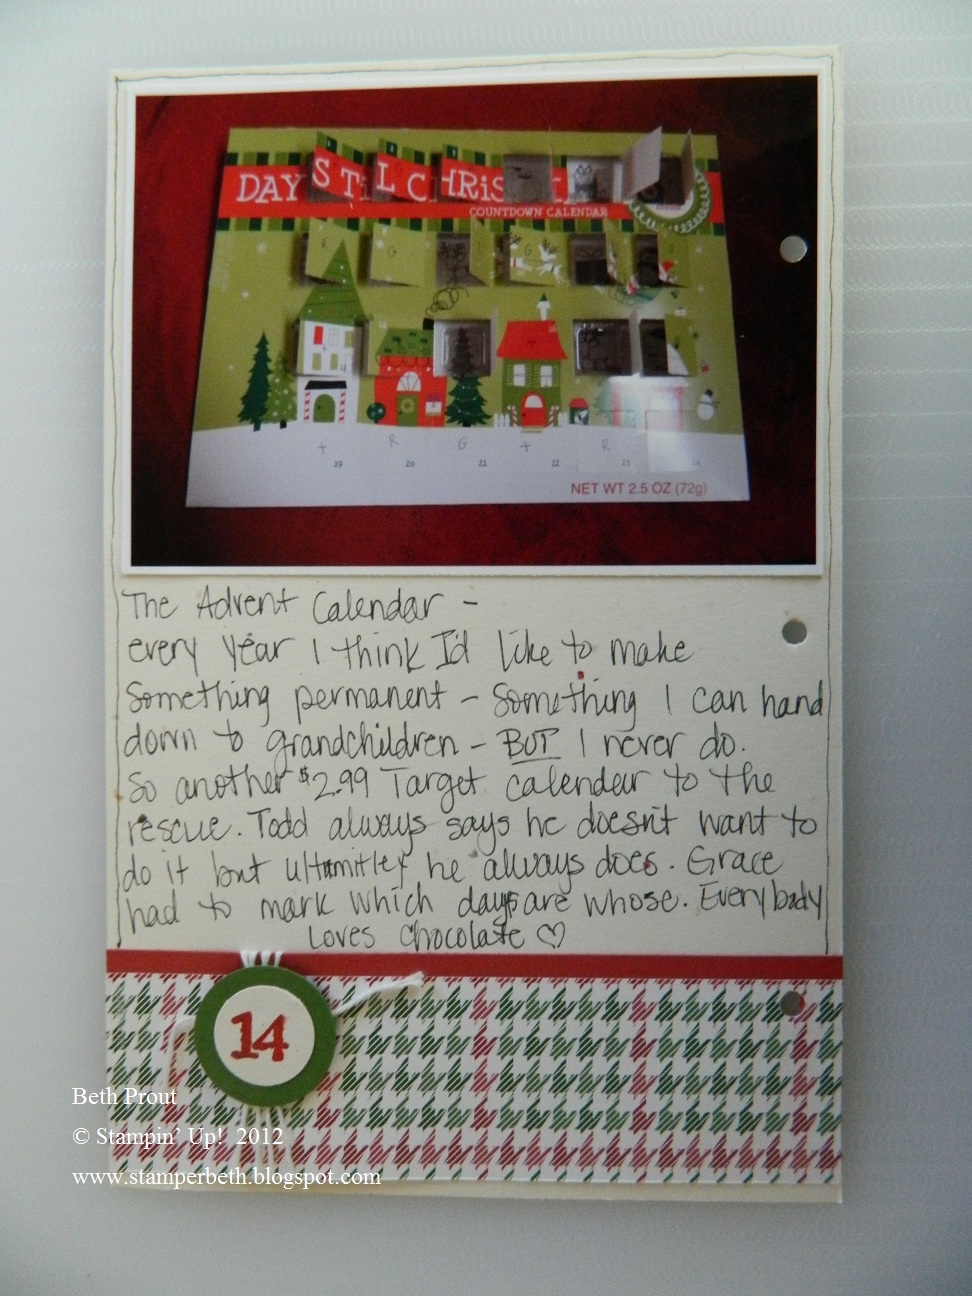 DAYS TIL CHRIS
COUNTDOWN CALENDAR
R G G
t R G t R
19 20 21 22 23 24
NET WT 2.5 OZ (72g)
The Advent Calendar -
every year I think I'd like to make
something permanent - something I can hand
down to grandchildren - BUT I never do.
So another $2.99 Target calendar to the
rescue. Todd always says he doesn't want to
do it but ultimitley he always does. Grace
had to mark which days are whose. Everybody
Loves Chocolate ♡
14
Beth Prout
© Stampin' Up! 2012
www.stamperbeth.blogspot.com